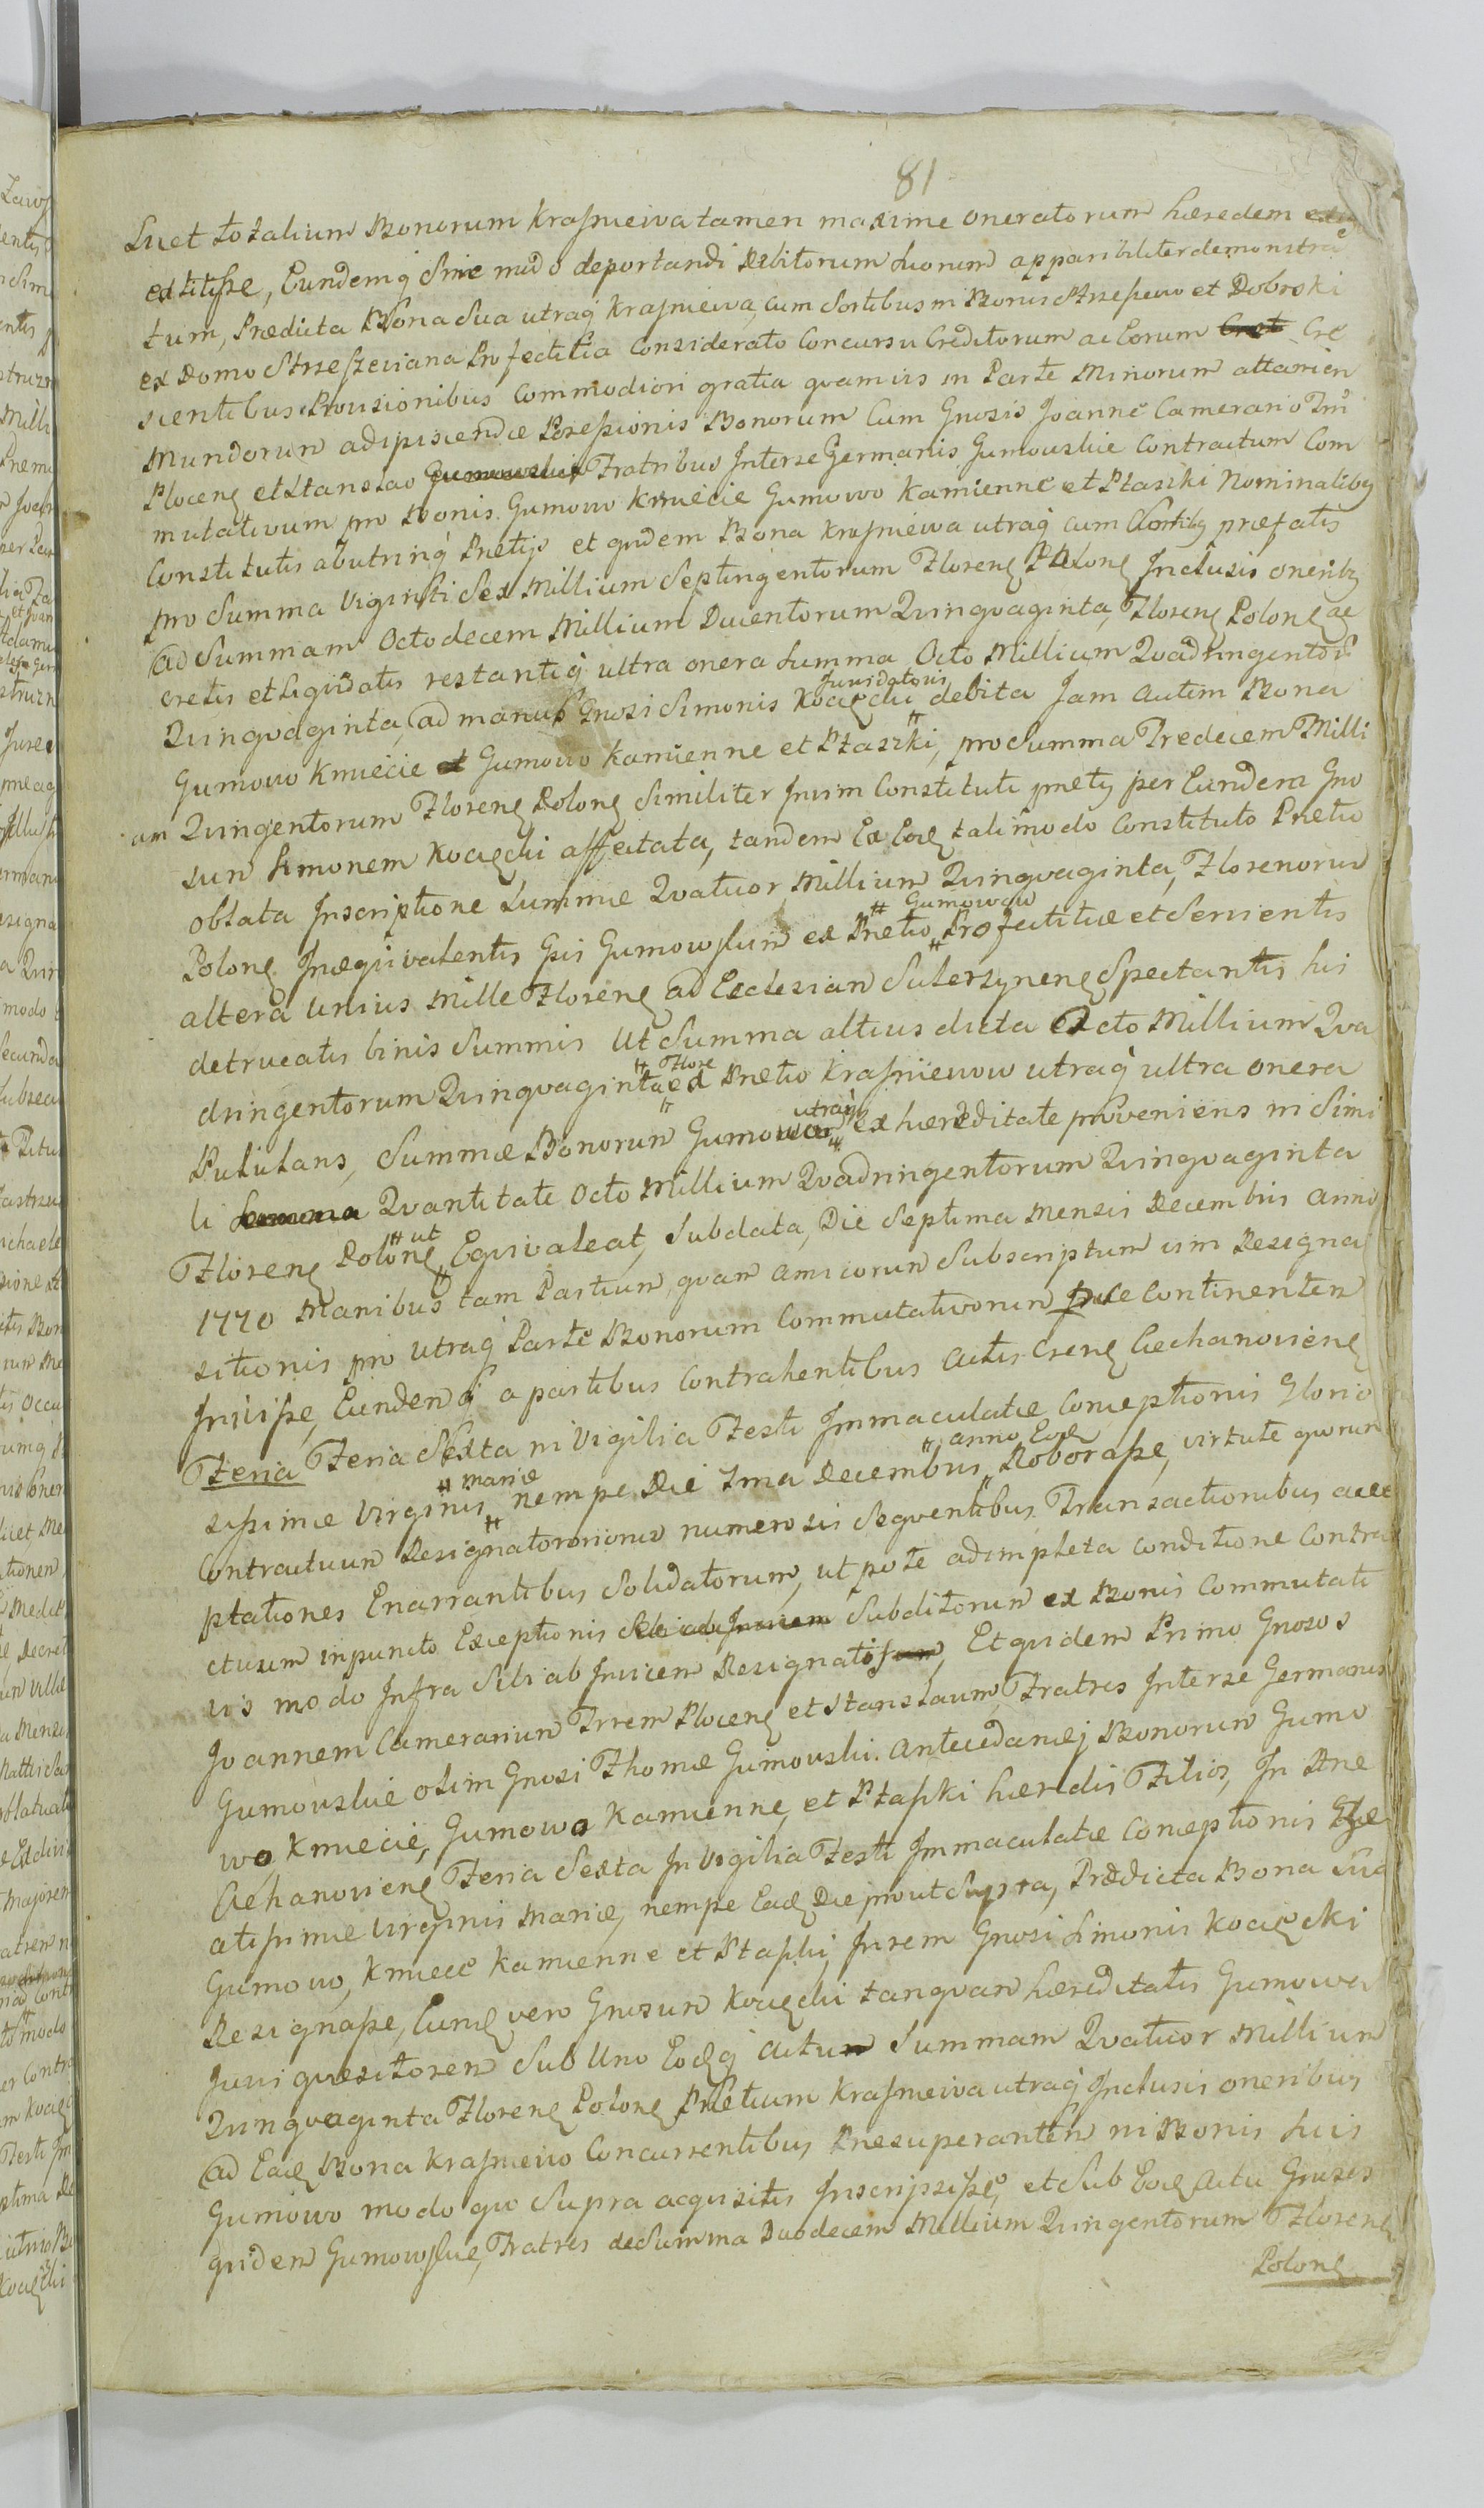 81
Licet totalium Bonorum Krasniewa tamen maxime oneratorum hæredem
extitisse, Eundemq Sine mõdo deportandi Debitorum suorum apparibiliter demonstra
tum, Prædicta Bona Sua utraq Krasniewa, cum Sortibus in Bonis Strzeszewo et Dobroski
ex Domo Strzeszewiana Profectitia Considerato Concursu Creditorum ac Eorum Cre
scentibus Provisionibus Commodiori gratia quamvis in Parte Minorum attamen
Mundorum adipiscendæ Possessionis Bonorum Cum Gnosis Joanne Camerario Trri
Plocenς et Stanslao Gumowskie Fratribus Interse Germanis Gumouskie Contractum Com
mutativum pro Bonis Gumowo Kmiecie Gumowo Kamienne et Ptaszki Nominalibus
Constitutis ab utrinq Pretijs et quidem Bona Krasniewa utraq cum Sortibq præfatis
pro Summa Viginti Sex Millium Septingentorum Florenς Polonς Inclusis oneribq
ad Summam Octodecem Millium Ducentorum Qvinqvaginta, Florenς Polonς ac
cretis et Liqvidatis restantiq ultra onera Summa Octo Millium Qvadringentorũ
Qvinqvaginta, ad manus Gnosi Simonis Kocięcki Juridatoris debita Jam autem Bona
Gumowo Kmiecie et Gumowo Kamienne et Ptaszki, pro Summa Tredecem Milli
um Qvingentorum Florenς Polonς Similiter Inim Constituti pretij per Eundem Gno
sum Simonem Kocięcki affectata, tandem Ex Eodς tali modo Constituto Pretio
oblata Inscriptione Summæ Qvatuor Millium Qvinqvaginta, Florenorum
Polonς Inæqvivalentis Gsis Gumowskim ex Pretio Gumowow Profectitiæ et Servientis
altera Unius Mille Florenς ad Ecclesiam Sulerzynenς Spectantis his
detrucatis binis Summis Ut Summa altius dicta Octo Millium Qva
dringentorum Qvinqvaginta Flore ex Pretio Krasniewow utraq ultra onera
Pululans, Summæ Bonorum Gumowow utraq Ex hæreditate proveniens in Simi
li Summa Qvantitate Octo Millium Qvadringentorum Qvinqvaginta
Florenς Polonς ut Eqvivaleat, Subdata, Die Septima Mensis Decembris Anno
1770 Manibus tam Partium, quam amicorum Subscriptum vim Resigna
sitionis pro utraq Parte Bonorum Commutativorum præ se Continentem
Inivisse, Eundemq a partibus Contrahentibus Actis Csenς Ciechanovienς
Feria Feria Sexta in Vigilia Festi Immaculatæ Conceptionis Glorio
sissimæ Virginis Mariæ nempe Die 7ma Decembris anno Eodς Roborasse, virtute quorum
Contractuum Resignatoriorumq numerosis Seqventibus Transactionibus acce
ptationes Enarrantibus Solidatorum, ut pote adimpleta conditione Contra
ctuum in puncto Exceptionis Sibi ab Invicem Subditorum ex Bonis Commutati
vis modo Infra Sibi ab Invicem Resignatis, Et qvidem Primo Gnosos
Joannem Camerarium Trrem Plocenς et Stanslaum, Fratres Interse Germanos
Gumouskie olim Gnosi Thomæ Gumouski Antecedanei Bonorum Gumo
wo Kmiecie, Gumowo Kamienne, et Ptaszki hæredis Filios, In Atne
Ciechanovienς Feria Sexta In Vigilia Festi Immaculatæ Conceptionis Be
atissimæ Virginis Mariæ, nempe Eadς Die prout Supra, Prædicta Bona Sua
Gumowo, Kmiece Kamienne et Ptaszki, Inrem Gnosi Simonis Kociecki
Resignasse, Eundς vero Gnosum Kociecki tanqvam hæreditatis Gumowow
Juri qvæsitorem Sub Uno Eodςq Actu Summam Qvatuor Millium
Qvinqvaginta Florenς Polonς Prætium Krasniewa utraq Inclusis oneribus
ad Eadς Bona Krasniewo Concurrentibus Præsuperantem in Bonis Suis
Gumowo modo quo Supra acqvisitis Inscripsisse, et Sub Eodς Actu Gnosos
qvidem Gumowskie, Fratres de Summa Duodecem Millium Qvingentorum Florenς
Polonς